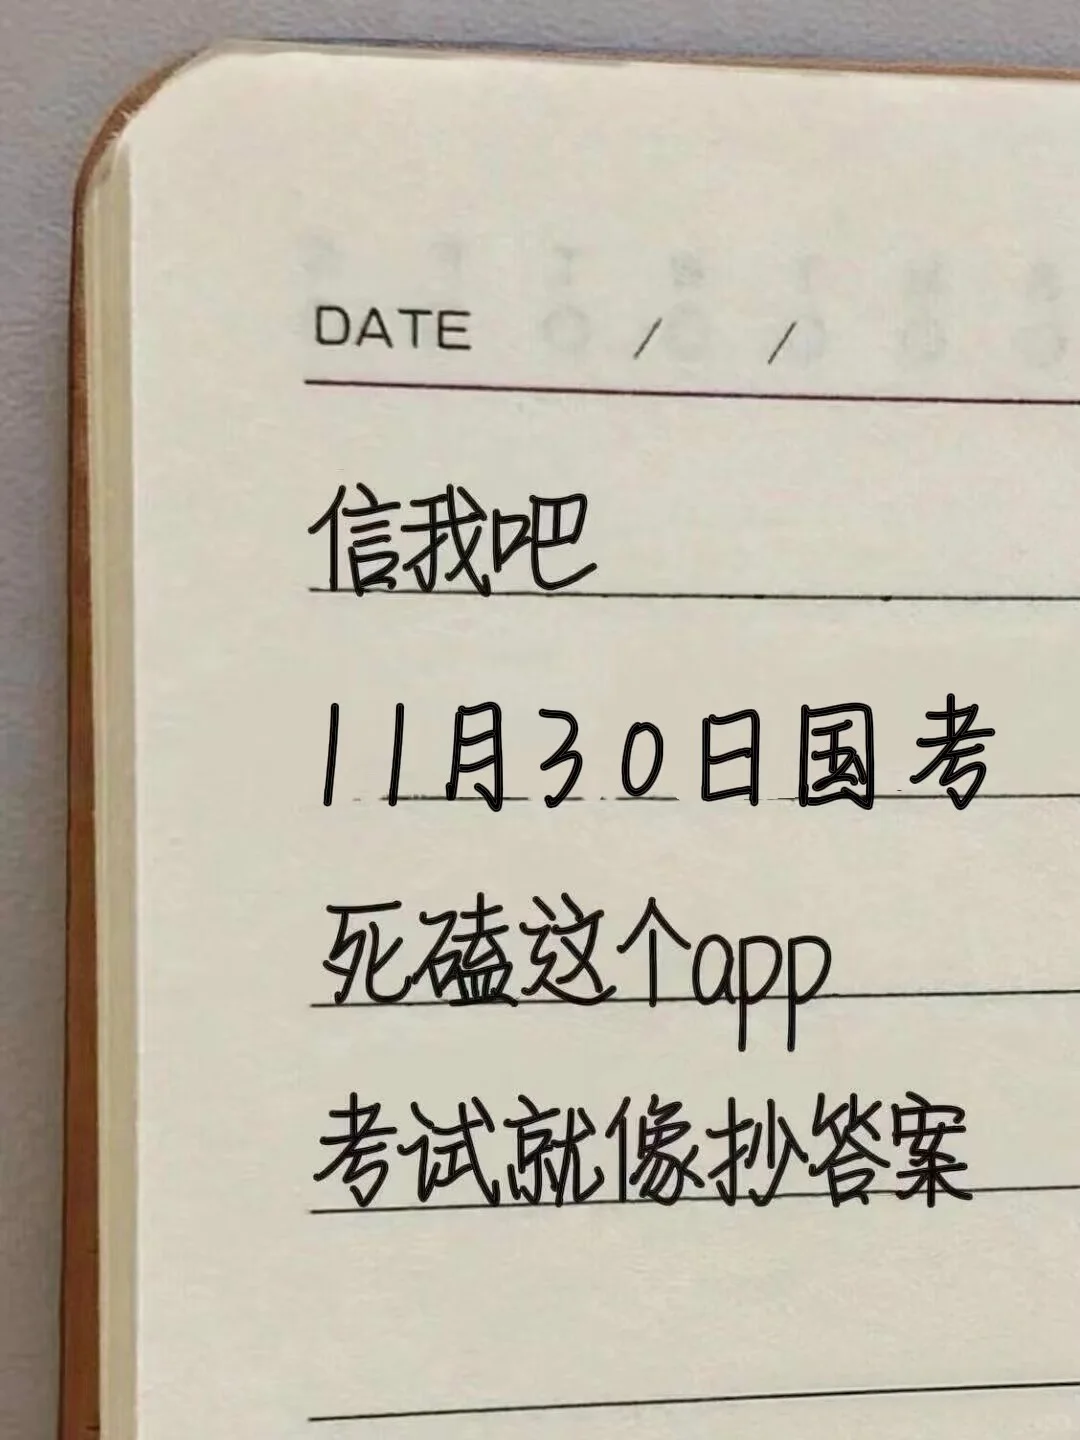 DATE / /
信我吧
11月30日国考
死磕这个app
考试就像抄答案